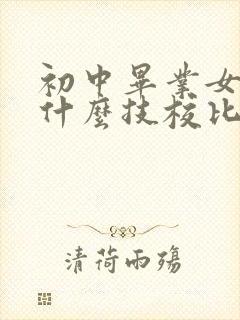 初中畢業女
什麼技校比
清荷雨殤